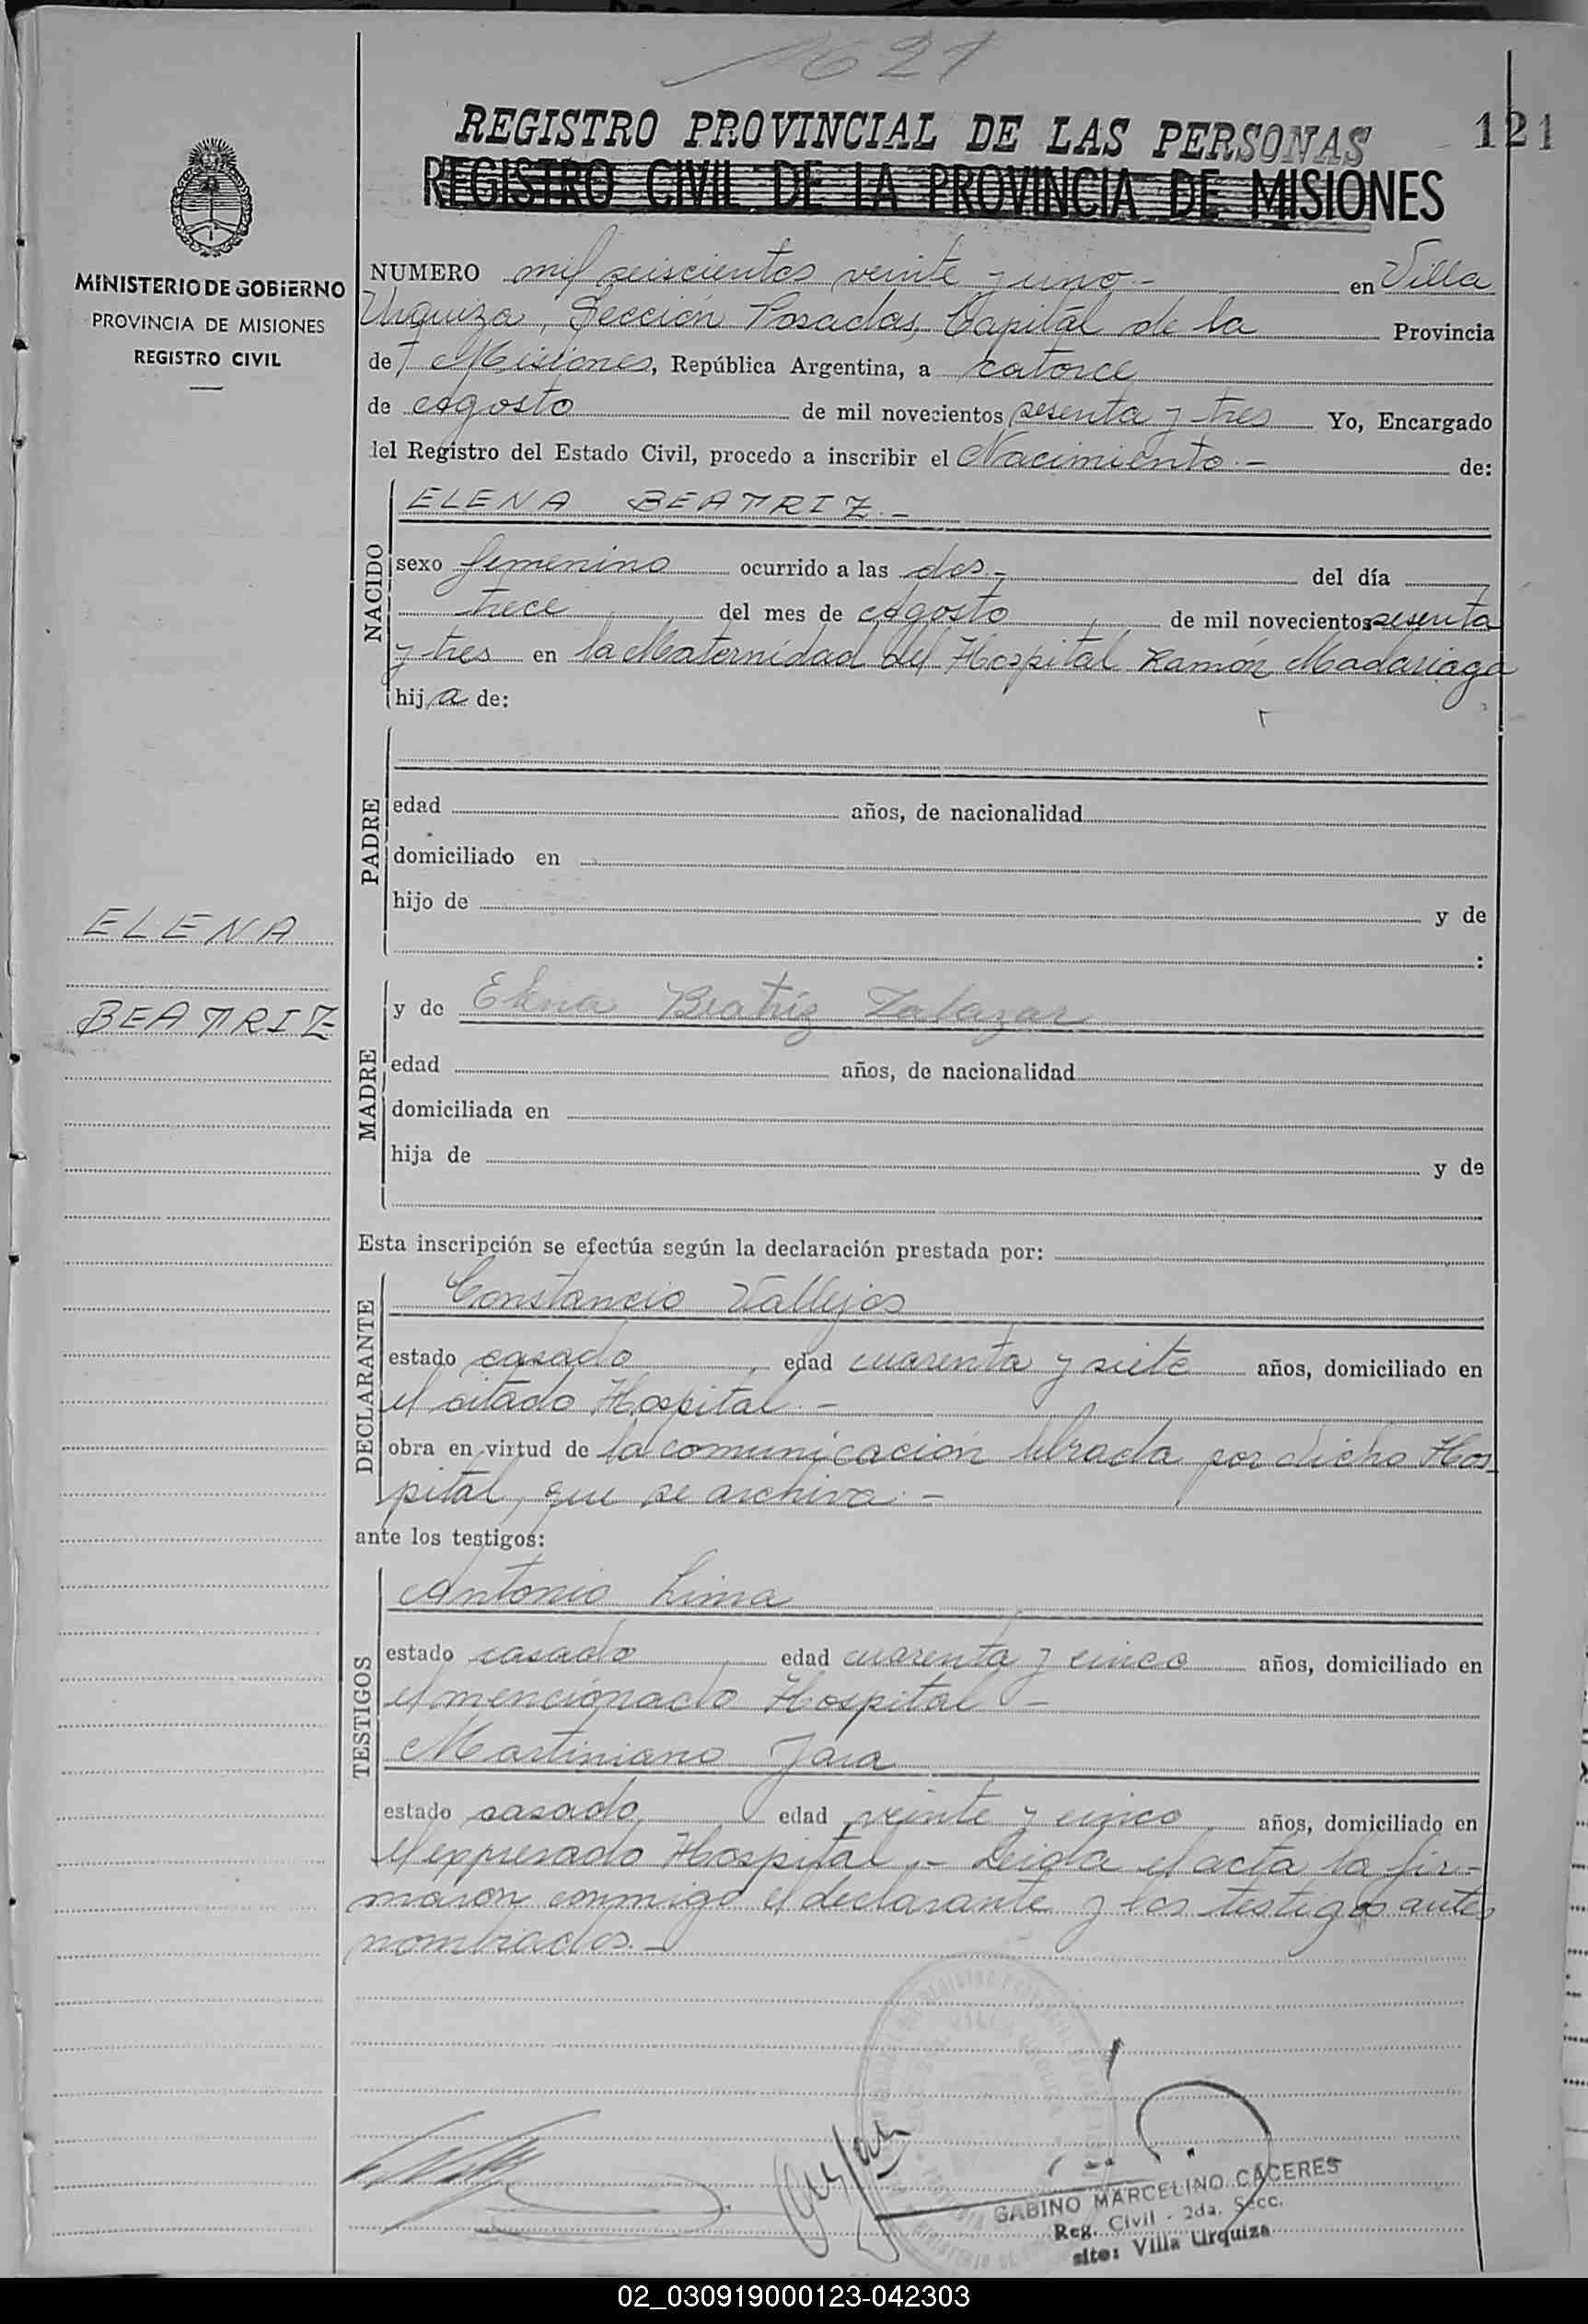 1621
121
REGISTRO PROVINCIAL DE LAS PERSONAS
REGISTRO CIVIL DE LA PROVINCIA DE MISIONES
MINISTERIO DE GOBIERNO
PROVINCIA DE MISIONES
REGISTRO CIVIL
NUMERO mil seiscientos veinte y uno.- en Villa
Urquiza, Sección Posadas, Capital de la Provincia
de Misiones, República Argentina, a catorce
de Agosto de mil novecientos sesenta y tres Yo, Encargado
del Registro del Estado Civil, procedo a inscribir el Nacimiento.- de:
NACIDO
ELENA BEATRIZ.-
sexo femenino ocurrido a las dos.- del día
trece del mes de Agosto de mil novecientos sesenta
y tres en la Maternidad del Hospital Ramón Madariaga
hija de:
PADRE
edad años, de nacionalidad
domiciliado en
hijo de y de
:
ELENA
BEATRIZ
MADRE
y de Elena Beatríz Zalazar
edad años, de nacionalidad
domiciliada en
hija de y de
Esta inscripción se efectúa según la declaración prestada por:
DECLARANTE
Constancio Vallejos
estado casado edad cuarenta y siete años, domiciliado en
el citado Hospital.-
obra en virtud de la comunicación librada por dicho Hos-
pital, que se archiva.-
ante los testigos:
TESTIGOS
Antonio Lima
estado casado edad cuarenta y cinco años, domiciliado en
el mencionado Hospital -
Martiniano Jara
estado casado edad veinte y cinco años, domiciliado en
el expresado Hospital.- Leida el acta la fir-
maron conmigo el declarante y los testigos antes
nombrados.-
GABINO MARCELINO CACERES
Reg. Civil - 2da. Secc.
sito: Villa Urquiza
02_030919000123-042303